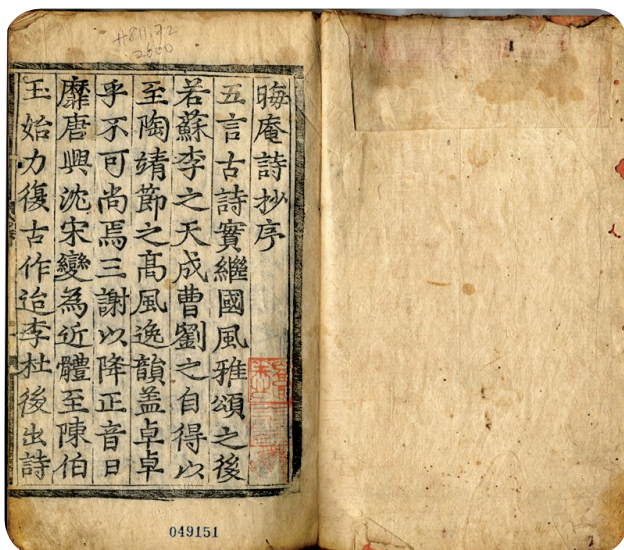 晦庵詩抄序
五言古詩實繼國風雅頌之後
若蘇李之天成曹劉之自得以
至陶靖節之髙風逸韻盖卓卓
乎不可尚焉三謝以降正音日
靡唐興沈宋變為近體至陳伯
玉始力復古作迨李杜後出詩
049151